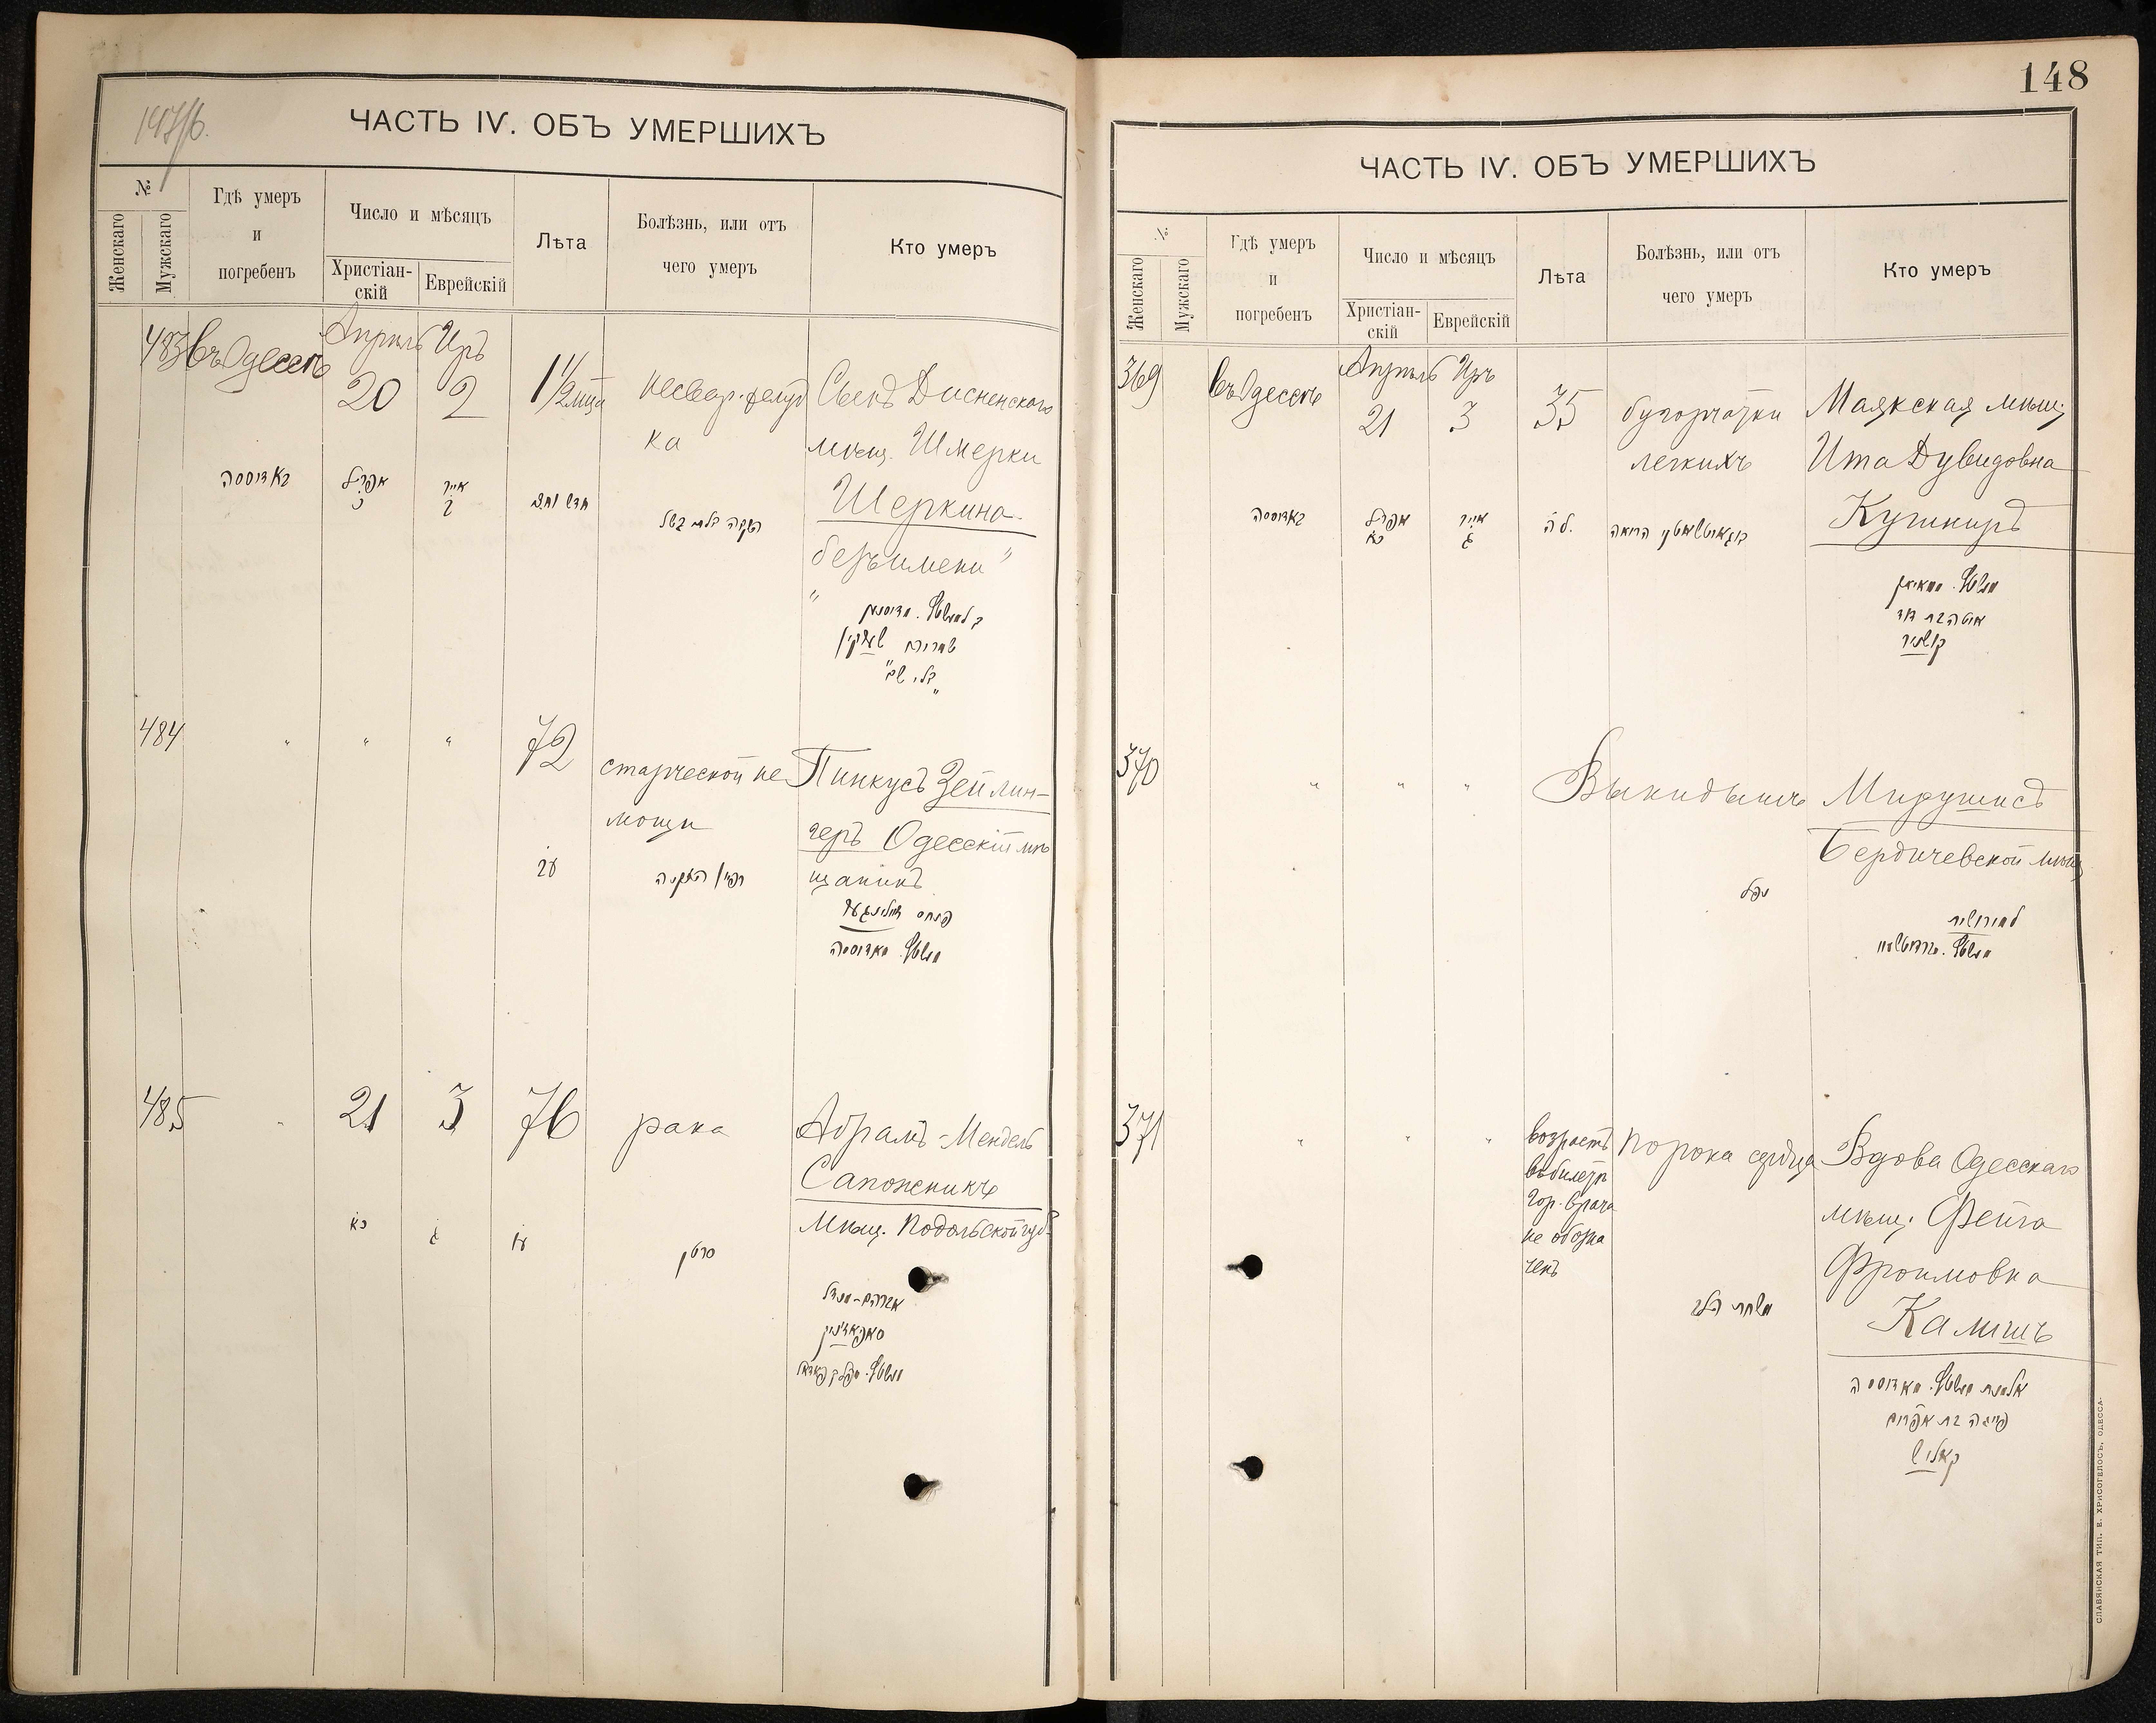 147/б.
ЧАСТЬ IV. ОБЪ УМЕРШИХЪ
№
Женскаго
Мужскаго
Гдѣ умеръ
и
погребенъ
Число и мѣсяцъ
Христіан-
скій
Еврейскій
Лѣта
Болѣзнь, или отъ
чего умеръ
Кто умеръ
483
въ Одессѣ
Апрѣль
20
Иръ
2
1 1/2 мца
несвар. желуд
ка
Сынъ Дисненскаго
мѣщ. Шмерки
Шеркина
безъ имени
באדוסטה
אפריל
כ
אייר
ב
484
"
"
"
72
старческой не
мощи
Пинкусъ Зейлин-
геръ Одесскій мѣ
щанинъ
עב
485
"
21
3
76
рака
Абрамъ-Мендель
Сапожникъ
мѣщ. Подольской губ.
כא
ג
עו
סרטן
אברהם-מנדל
148
ЧАСТЬ IV. ОБЪ УМЕРШИХЪ
№
Женскаго
Мужскаго
Гдѣ умеръ
и
погребенъ
Число и мѣсяцъ
Христіан-
скій
Еврейскій
Лѣта
Болѣзнь, или отъ
чего умеръ
Кто умеръ
369
въ Одессѣ
Апрѣль
21
Иръ
3
35
бугорчатки
легкихъ
Маякская мѣщ.
Ита Дувидовна
Кушниръ
באדוסטה
אפריל
כא
אייר
ג
לה
370
"
"
"
Выкидышъ
Мирушисъ
Бердичевской мѣщ
נפל
371
"
"
"
возрастъ
въ билетѣ
Гор. врача
не обозна
ченъ
порока сердца
Вдова Одесскаго
мѣщ. Фейга
Фроимовна
Калишъ
פייגה בת אפרים
קאליש
СЛАВЯНСКАЯ ТИП. Е. ХРИСОГЕЛОСЪ, ОДЕССА.